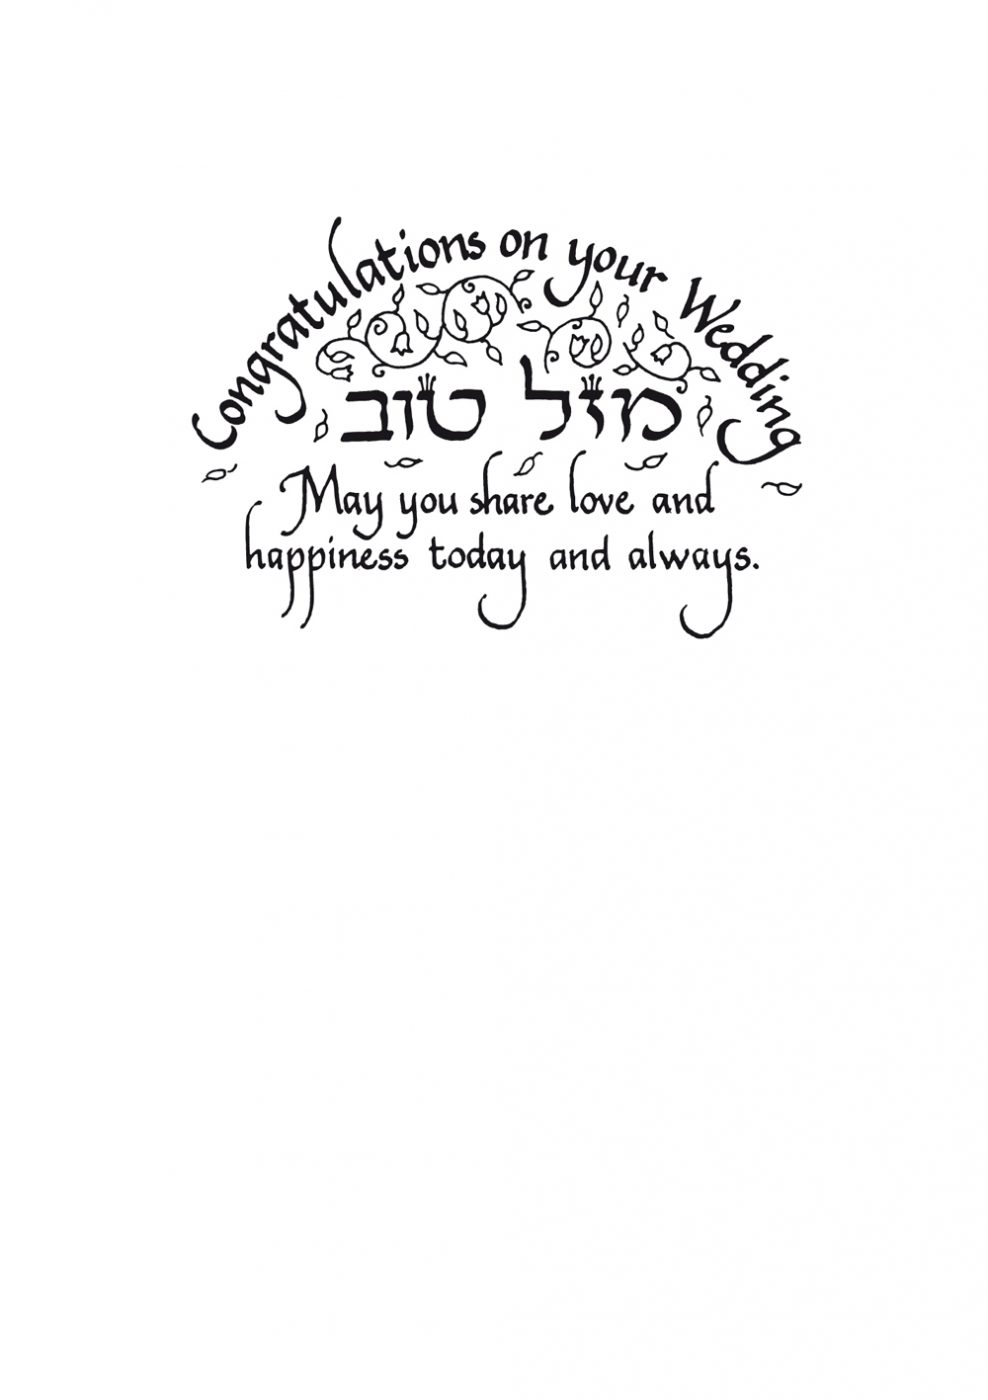 Congratulations on your Wedding
מזל טוב
May you share love and
happiness today and always.